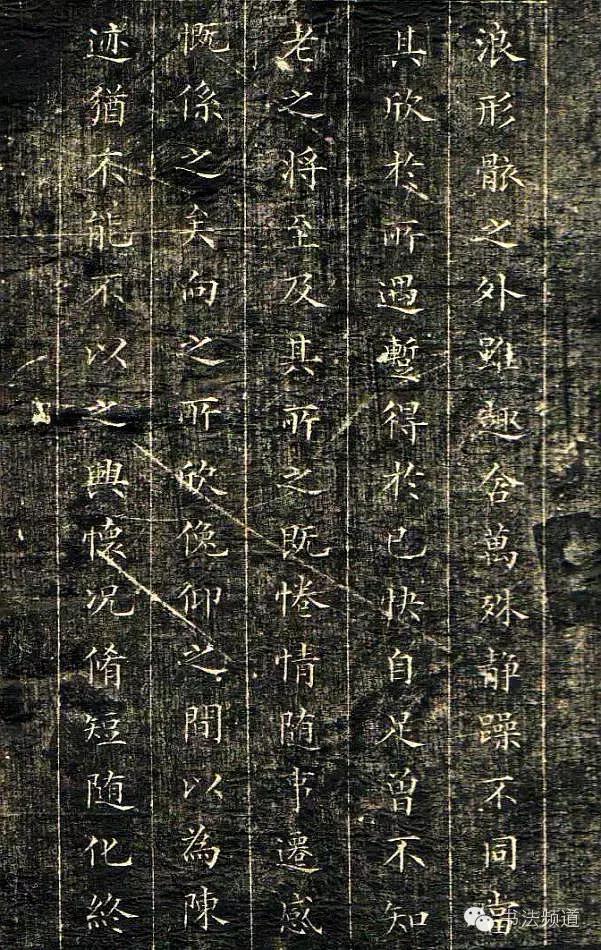 浪形骸之外雖趣舍萬殊静躁不同當
其欣於所遇蹔得於己快自足曽不知
老之將至及其所之既惓情随事遷感
慨係之矣向之所欣俛仰之間以為陳
迹猶不能不以之興懷况脩短随化終
书法频道